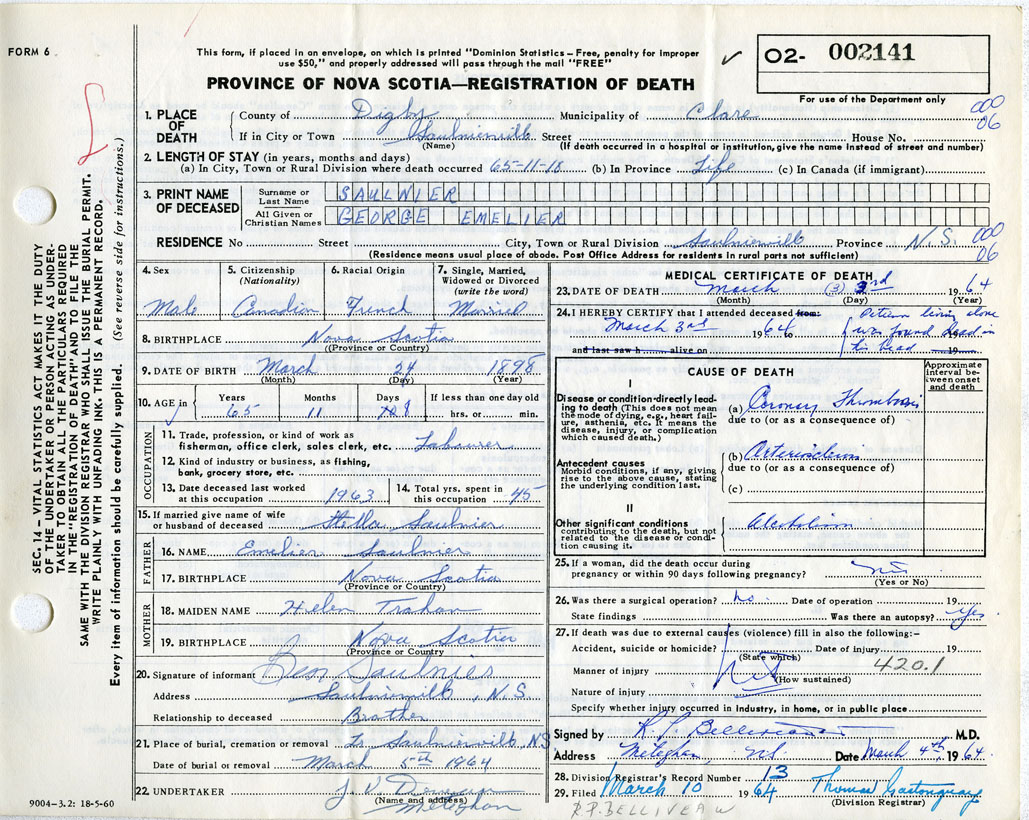 FORM 6
This form, if placed in an envelope, on which is printed "Dominion Statistics – Free, penalty for improper
use $50," and properly addressed will pass through the mail "FREE"
✓
02- 002141
For use of the Department only
PROVINCE OF NOVA SCOTIA—REGISTRATION OF DEATH
000
06
1. PLACE OF DEATH
County of Digby Municipality of Clare
If in City or Town Saulnierville Street House No.
(Name) (If death occurred in a hospital or institution, give the name instead of street and number)
2. LENGTH OF STAY (in years, months and days)
(a) In City, Town or Rural Division where death occurred 65-11-18 (b) In Province Life (c) In Canada (if immigrant)
3. PRINT NAME OF DECEASED
Surname or Last Name SAULNIER
All Given or Christian Names GEORGE EMELIER
000
06
RESIDENCE No Street City, Town or Rural Division Saulnierville Province N.S.
(Residence means usual place of abode. Post Office Address for residents in rural parts not sufficient)
4. Sex Male
5. Citizenship (Nationality) Canadian
6. Racial Origin French
7. Single, Married, Widowed or Divorced (write the word) Married
8. BIRTHPLACE Nova Scotia
(Province or Country)
9. DATE OF BIRTH March 24 1898
(Month) (Day) (Year)
10. AGE in Years Months Days If less than one day old
65 11 hrs. or min.
OCCUPATION
11. Trade, profession, or kind of work as
fisherman, office clerk, sales clerk, etc. Labourer
12. Kind of industry or business, as fishing,
bank, grocery store, etc.
13. Date deceased last worked
at this occupation 1963
14. Total yrs. spent in
this occupation 45
15. If married give name of wife
or husband of deceased Stella Saulnier
FATHER
16. NAME Emelier Saulnier
17. BIRTHPLACE Nova Scotia
(Province or Country)
MOTHER
18. MAIDEN NAME Helen Trahan
19. BIRTHPLACE Nova Scotia
(Province or Country)
20. Signature of informant Ben Saulnier
Address Saulnierville, N.S.
Relationship to deceased Brother
21. Place of burial, cremation or removal Saulnierville NS
Date of burial or removal March 5th 1964
22. UNDERTAKER J. V.
(Name and address)
Meteghan
9004—3.2: 18-5-60
MEDICAL CERTIFICATE OF DEATH
23. DATE OF DEATH March (3) 3rd 1964
(Month) (Day) (Year)
24. I HEREBY CERTIFY that I attended deceased from:
March 3rd 1964
living alone
was found dead in
his bead
and last saw h alive on 19
CAUSE OF DEATH
Approximate interval between onset and death
I
Disease or condition directly leading to death (This does not mean
the mode of dying, e.g., heart failure, asthenia, etc. It means the
disease, injury, or complication
which caused death.)
(a) Coronary Thrombosis
due to (or as a consequence of)
Antecedent causes
Morbid conditions, if any, giving
rise to the above cause, stating
the underlying condition last.
(b)
due to (or as a consequence of)
(c)
II
Other significant conditions
contributing to the death, but not
related to the disease or condition causing it.
Alcoholism
25. If a woman, did the death occur during
pregnancy or within 90 days following pregnancy?
(Yes or No)
26. Was there a surgical operation? No Date of operation 19
State findings Was there an autopsy? Yes
27. If death was due to external causes (violence) fill in also the following:–
Accident, suicide or homicide? Date of injury 19
(State which)
Manner of injury 420.1
(How sustained)
Nature of injury
Specify whether injury occurred in industry, in home, or in public place
Signed by R. P. Belliveau M.D.
Address Meteghan, NS Date March 4th 1964
28. Division Registrar's Record Number 13
29. Filed March 10 1964 Thomas Gastonguay
(Division Registrar)
R.P. BELLIVEAU
SEC. 14 – VITAL STATISTICS ACT MAKES IT THE DUTY
OF THE UNDERTAKER OR PERSON ACTING AS UNDER-
TAKER TO OBTAIN ALL THE PARTICULARS REQUIRED
IN THE "REGISTRATION OF DEATH" AND TO FILE THE
SAME WITH THE DIVISION REGISTRAR WHO SHALL ISSUE THE BURIAL PERMIT.
WRITE PLAINLY WITH UNFADING INK. THIS IS A PERMANENT RECORD.
Every item of information should be carefully supplied. (See reverse side for instructions.)